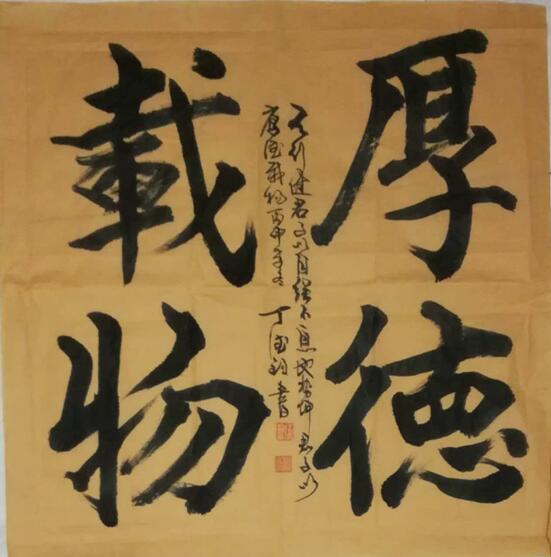 厚德
載物
天行健君子以自强不息地势坤君子以
厚德载物丙申年冬 丁 书